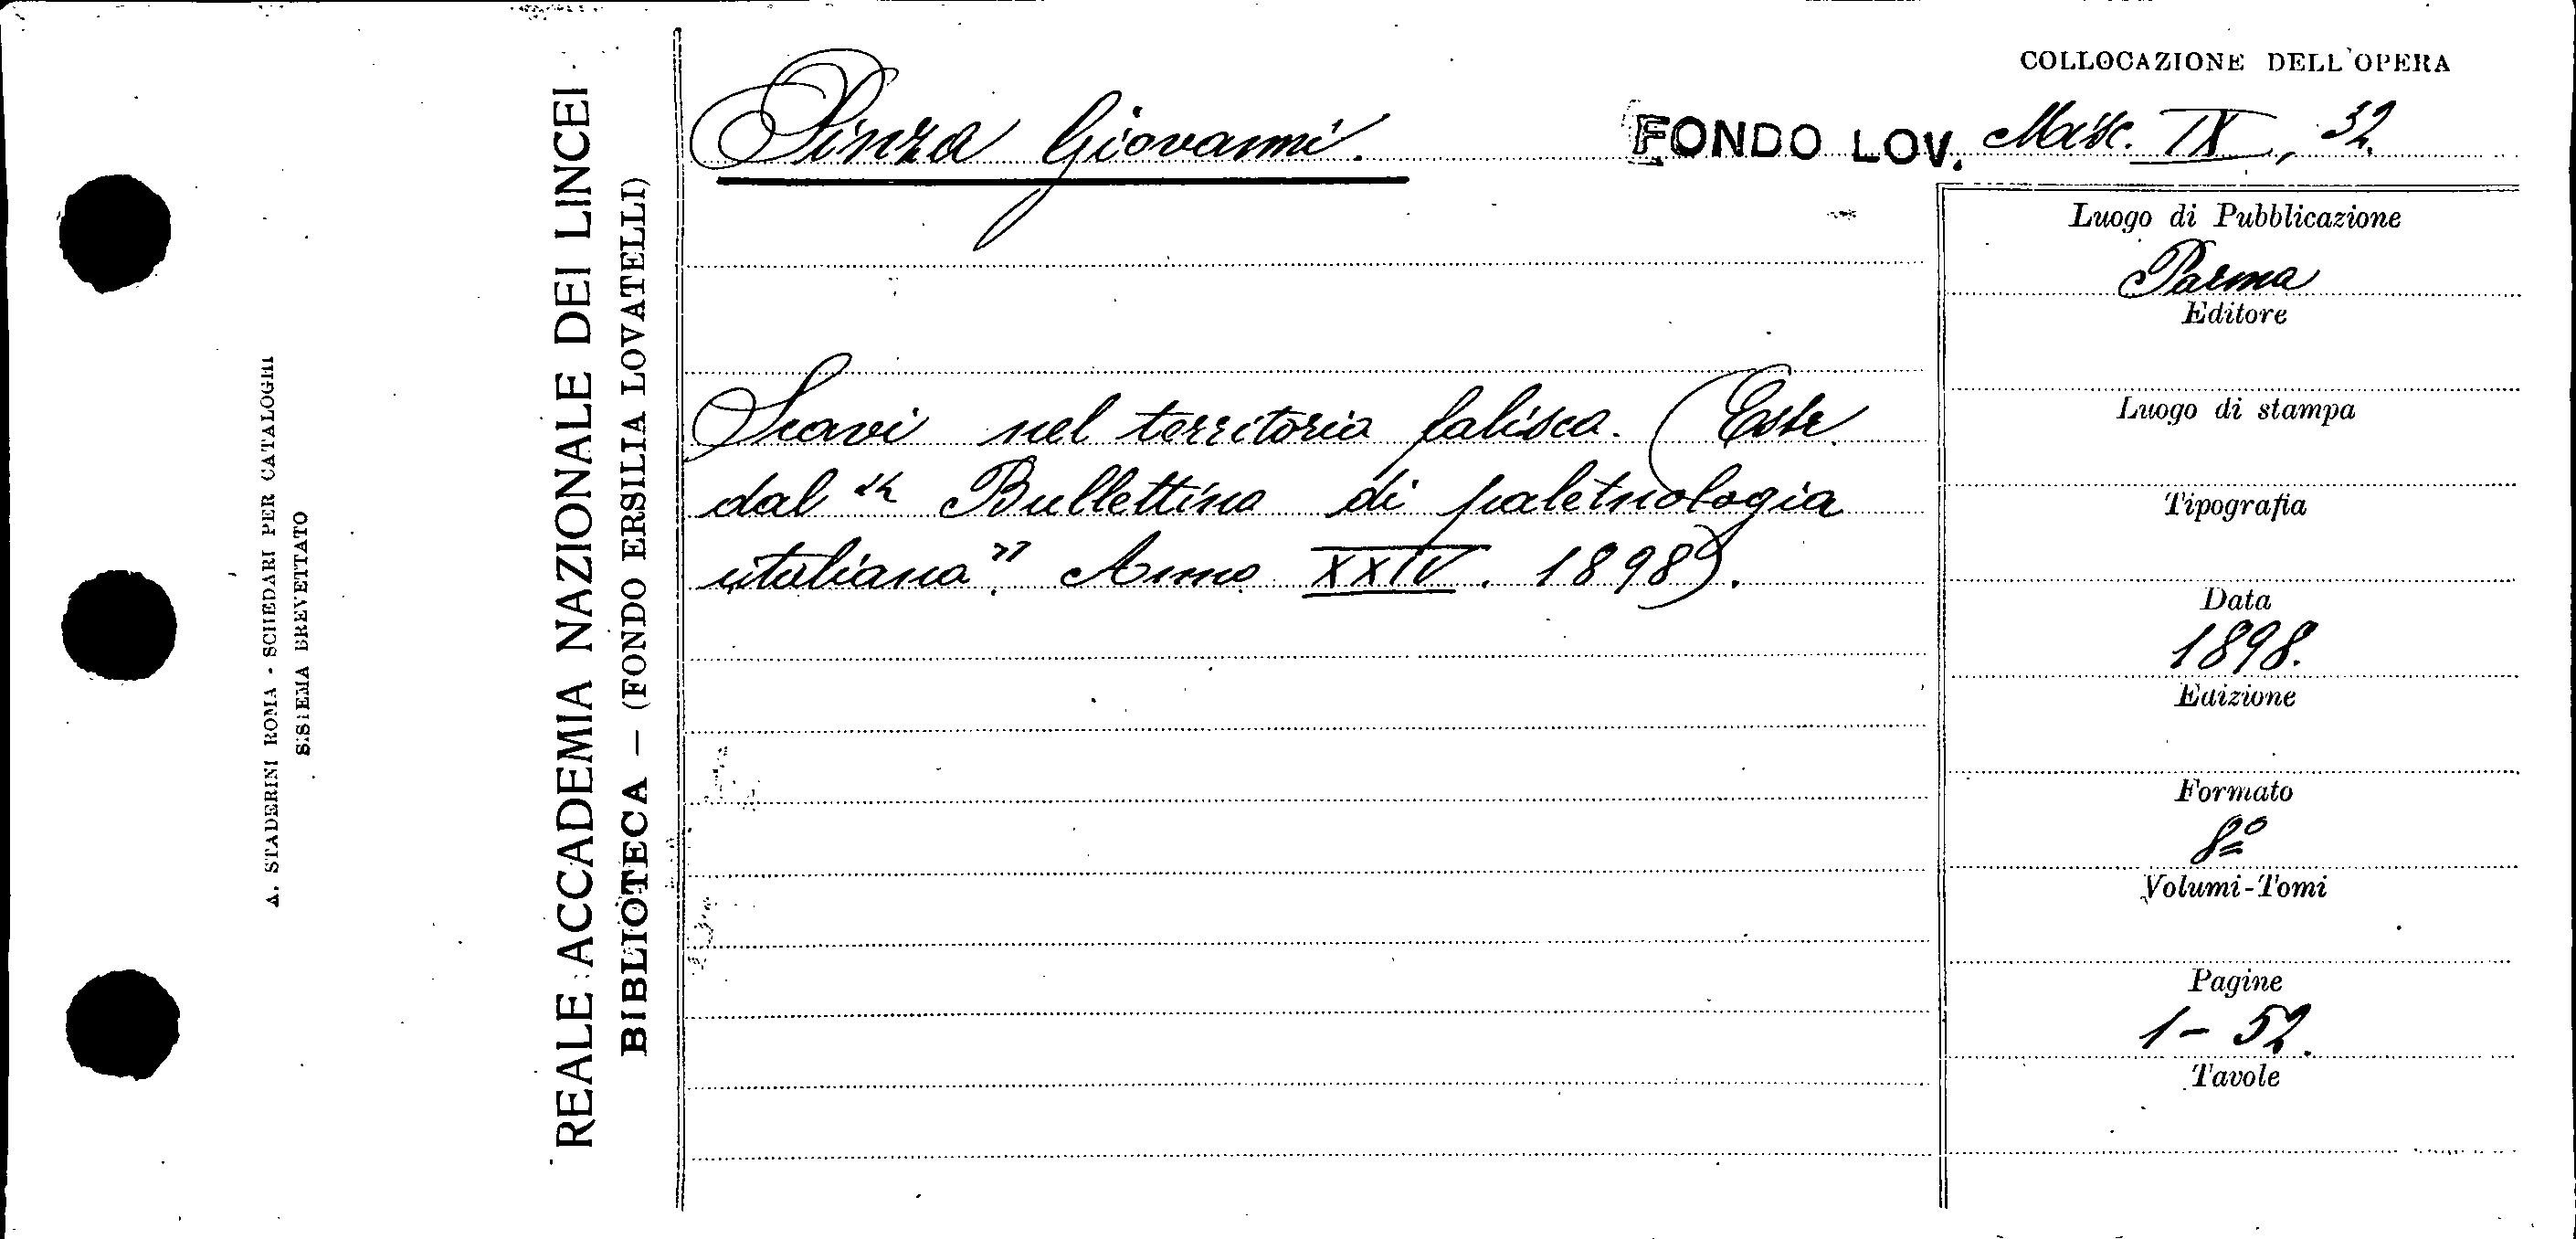 COLLOCAZIONE DELL'OPERA
Pinza Giovanni.
FONDO LOV. Misc. IX, 32
Scavi nel territorio falisco. (Estr.
dal "Bullettino di paletnologia
italiana" Anno XXIV. 1898).
Luogo di Pubblicazione
Parma
Editore
Luogo di stampa
Tipografia
Data
1898.
Edizione
Formato
8º
Volumi-Tomi
Pagine
1-52.
Tavole
REALE ACCADEMIA NAZIONALE DEI LINCEI
BIBLIOTECA — (FONDO ERSILIA LOVATELLI)
A. STADERINI ROMA - SCHEDARI PER CATALOGHI
SISTEMA BREVETTATO